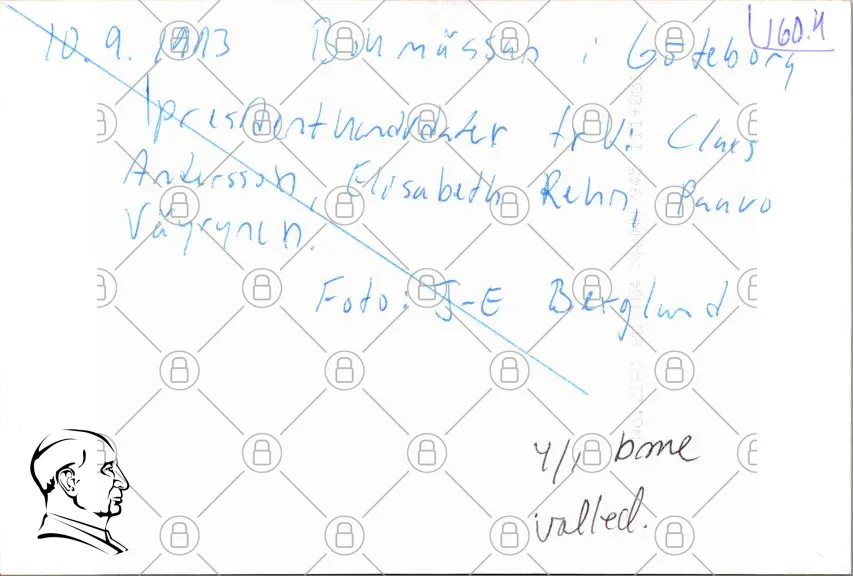 160.4
10.9.1993 Bokmässan i Göteborg
presidentkandidater fr.v: Claes
Andersson, Elisabeth Rehn, Paavo
Väyrynen.
Foto: J-E Berglund
4/1 bme
valled.